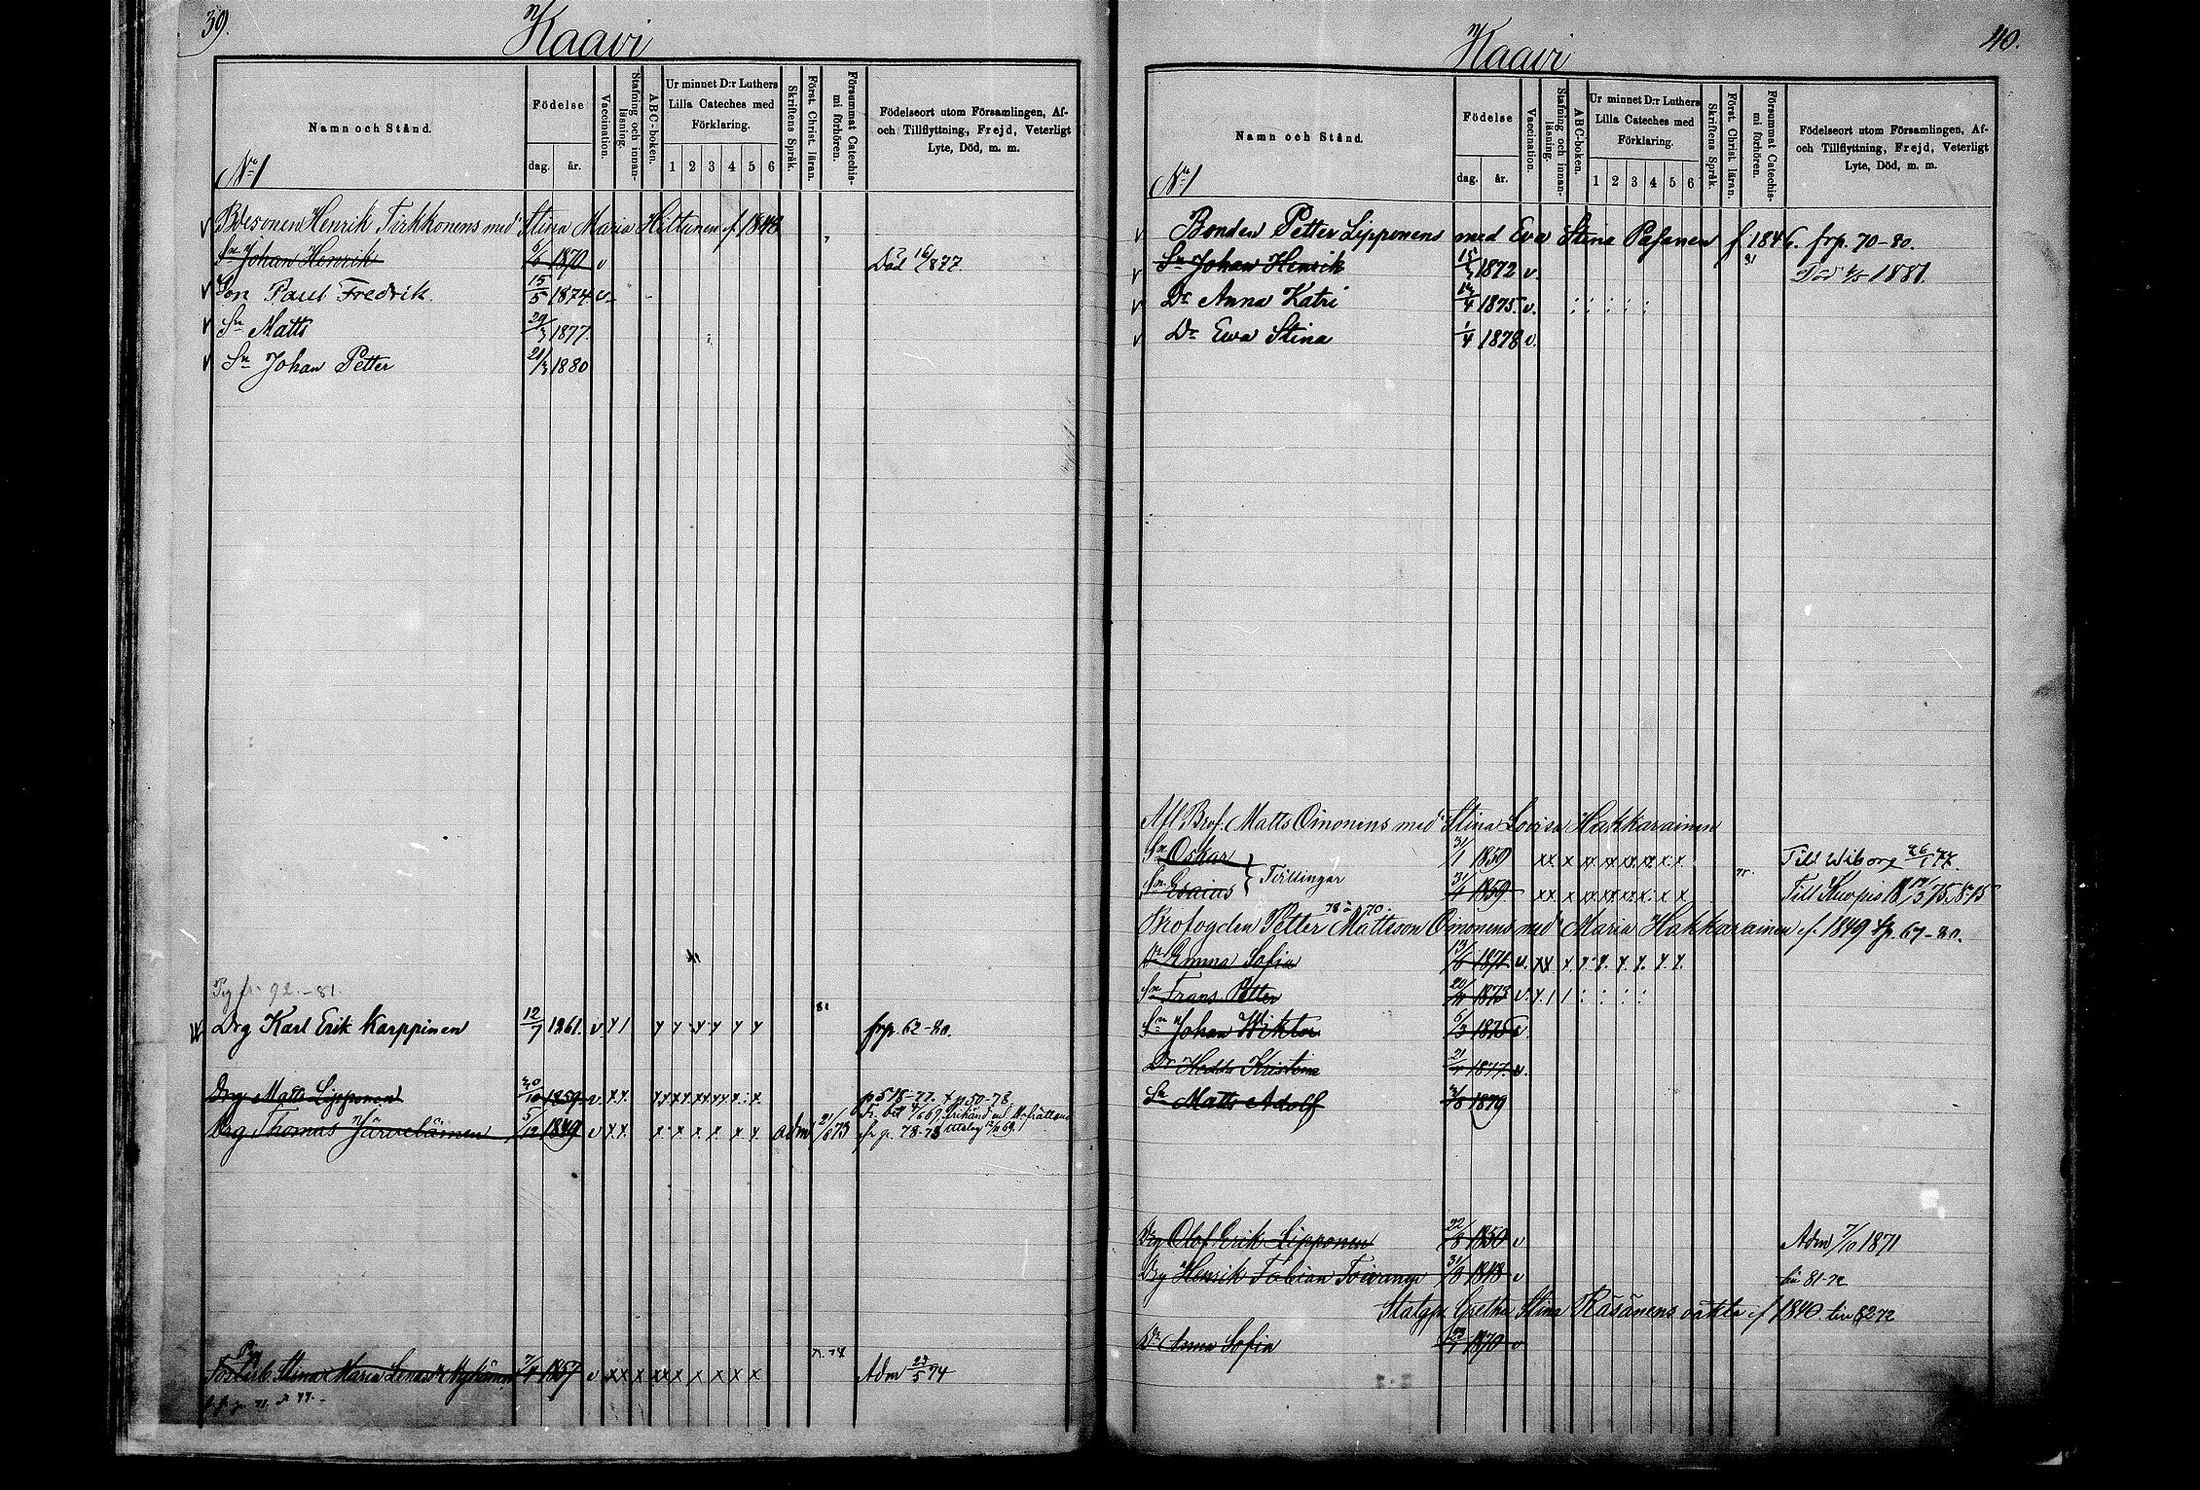 39.
Kaavi
Namn och Stånd.
Födelse
dag. år.
Vaccination.
Stafning och innanläsning.
ABC-boken.
Ur minnet D:r Luthers
Lilla Cateches med
Förklaring.
1 2 3 4 5 6
Skriftens Språk.
Först. Christ. läran.
Försummat Catechismi förhören.
Födelseort utom Församlingen, Af-
och Tillflyttning, Frejd, Veterligt
Lyte, Död, m. m.
No 1
Henrik Tirkkonens med Stina Maria Hiltunen f. 1848
Sn Johan Henrik 1870 v Död 16/ 877
Son Paul Fredrik. 15/5 1874 v
Sn Matts 29/3 1877.
Sn Johan Petter 21/3 1880
92.-81.
81
Drg Karl Erik Karppinen 12/7 1861. v x 1 x x x x x x frp. 62-80.
Drg Matts Lipponen 20/10 1859 v x x p 578-77. p 50-78
Drg Thomas Järveläinen 5/12 1849 v x x x x x x x x adm 21/6 73 fr p. 78-78
Stina Maria 1857 v Adm 23/5 74
40.
Kaavi
Namn och Stånd.
Födelse
dag. år.
Vaccination.
Stafning och innanläsning.
ABC-boken.
Ur minnet D:r Luthers
Lilla Cateches med
Förklaring.
1 2 3 4 5 6
Skriftens Språk.
Först. Christ. läran.
Försummat Catechismi förhören.
Födelseort utom Församlingen, Af-
och Tillflyttning, Frejd, Veterligt
Lyte, Död, m. m.
No 1
Bonden Petter Lipponens med Eva Stina Pasanen f 1846. frp. 70-80.
81
Sn Johan Henrik 1872 v. Död 1881.
Dr Anna Katri 1875. v.
Dr Ewa Stina 1/4 1878 v.
Matts Oinonens med Stina Lovisa Hakkarainen
Sn Oskar 31/1 1859 Till Wiborg
Sn Esaias Tvillingar 1859 Till Kuopio
Brofogden Petter Mattsson Oinonens med Maria Hakkarainen f. 1849 67-80.
Dr Emma Sofia 13/6 1871 v.
Sn Frans Petter 1873 v.
Sn Johan Wiktor 6/3 1875 v.
Dr Kristina 1877. v.
Sn Matts Adolf 1879
Drg Olof Erik Lipponen 22/8 1850 v Adm 7/10 1871
Drg Henrik Fabian Toivanen 31/8 1848 v 81-72
Gretha Stina Räsänens oäkta f 1840
Dr Anna Sofia 1870 v